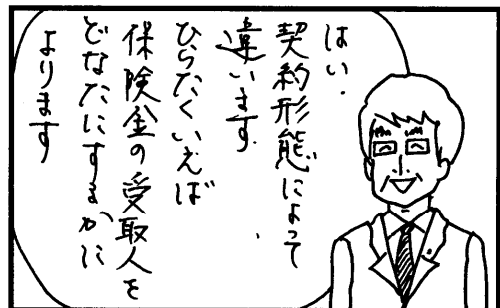 はい.
契約形態によって
違います.
ひらたくいえば
保険金の受取人を
どなたにするかに
よります